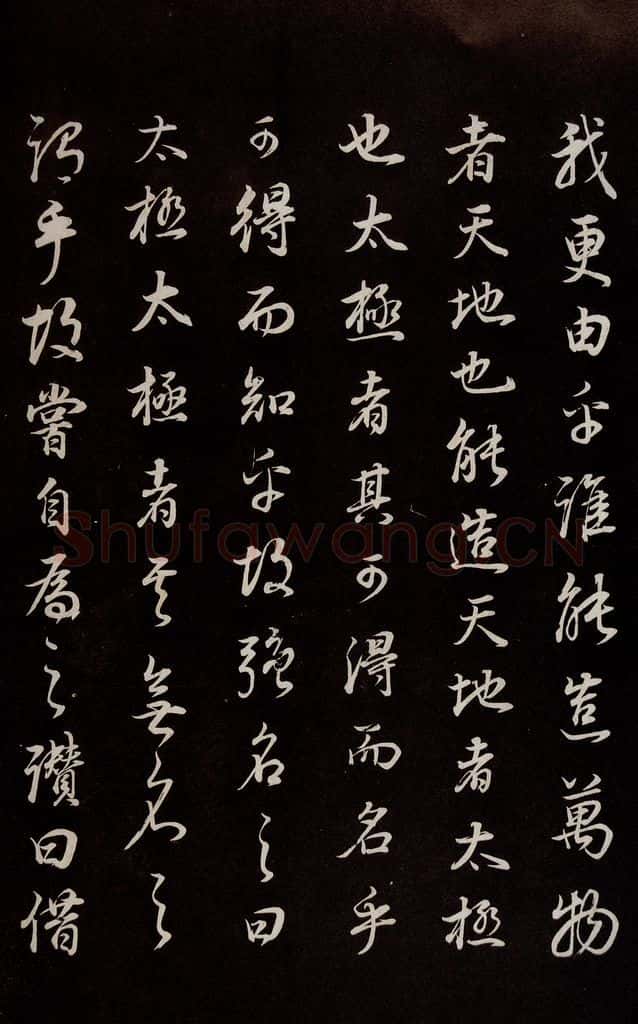 我更由乎誰能造萬物
者天地也能造天地者太極
也太極者其可得而名乎
可得而知乎故強名之曰
太極太極者其無名之
謂乎故嘗自為之讚曰借
Shufawang.CN